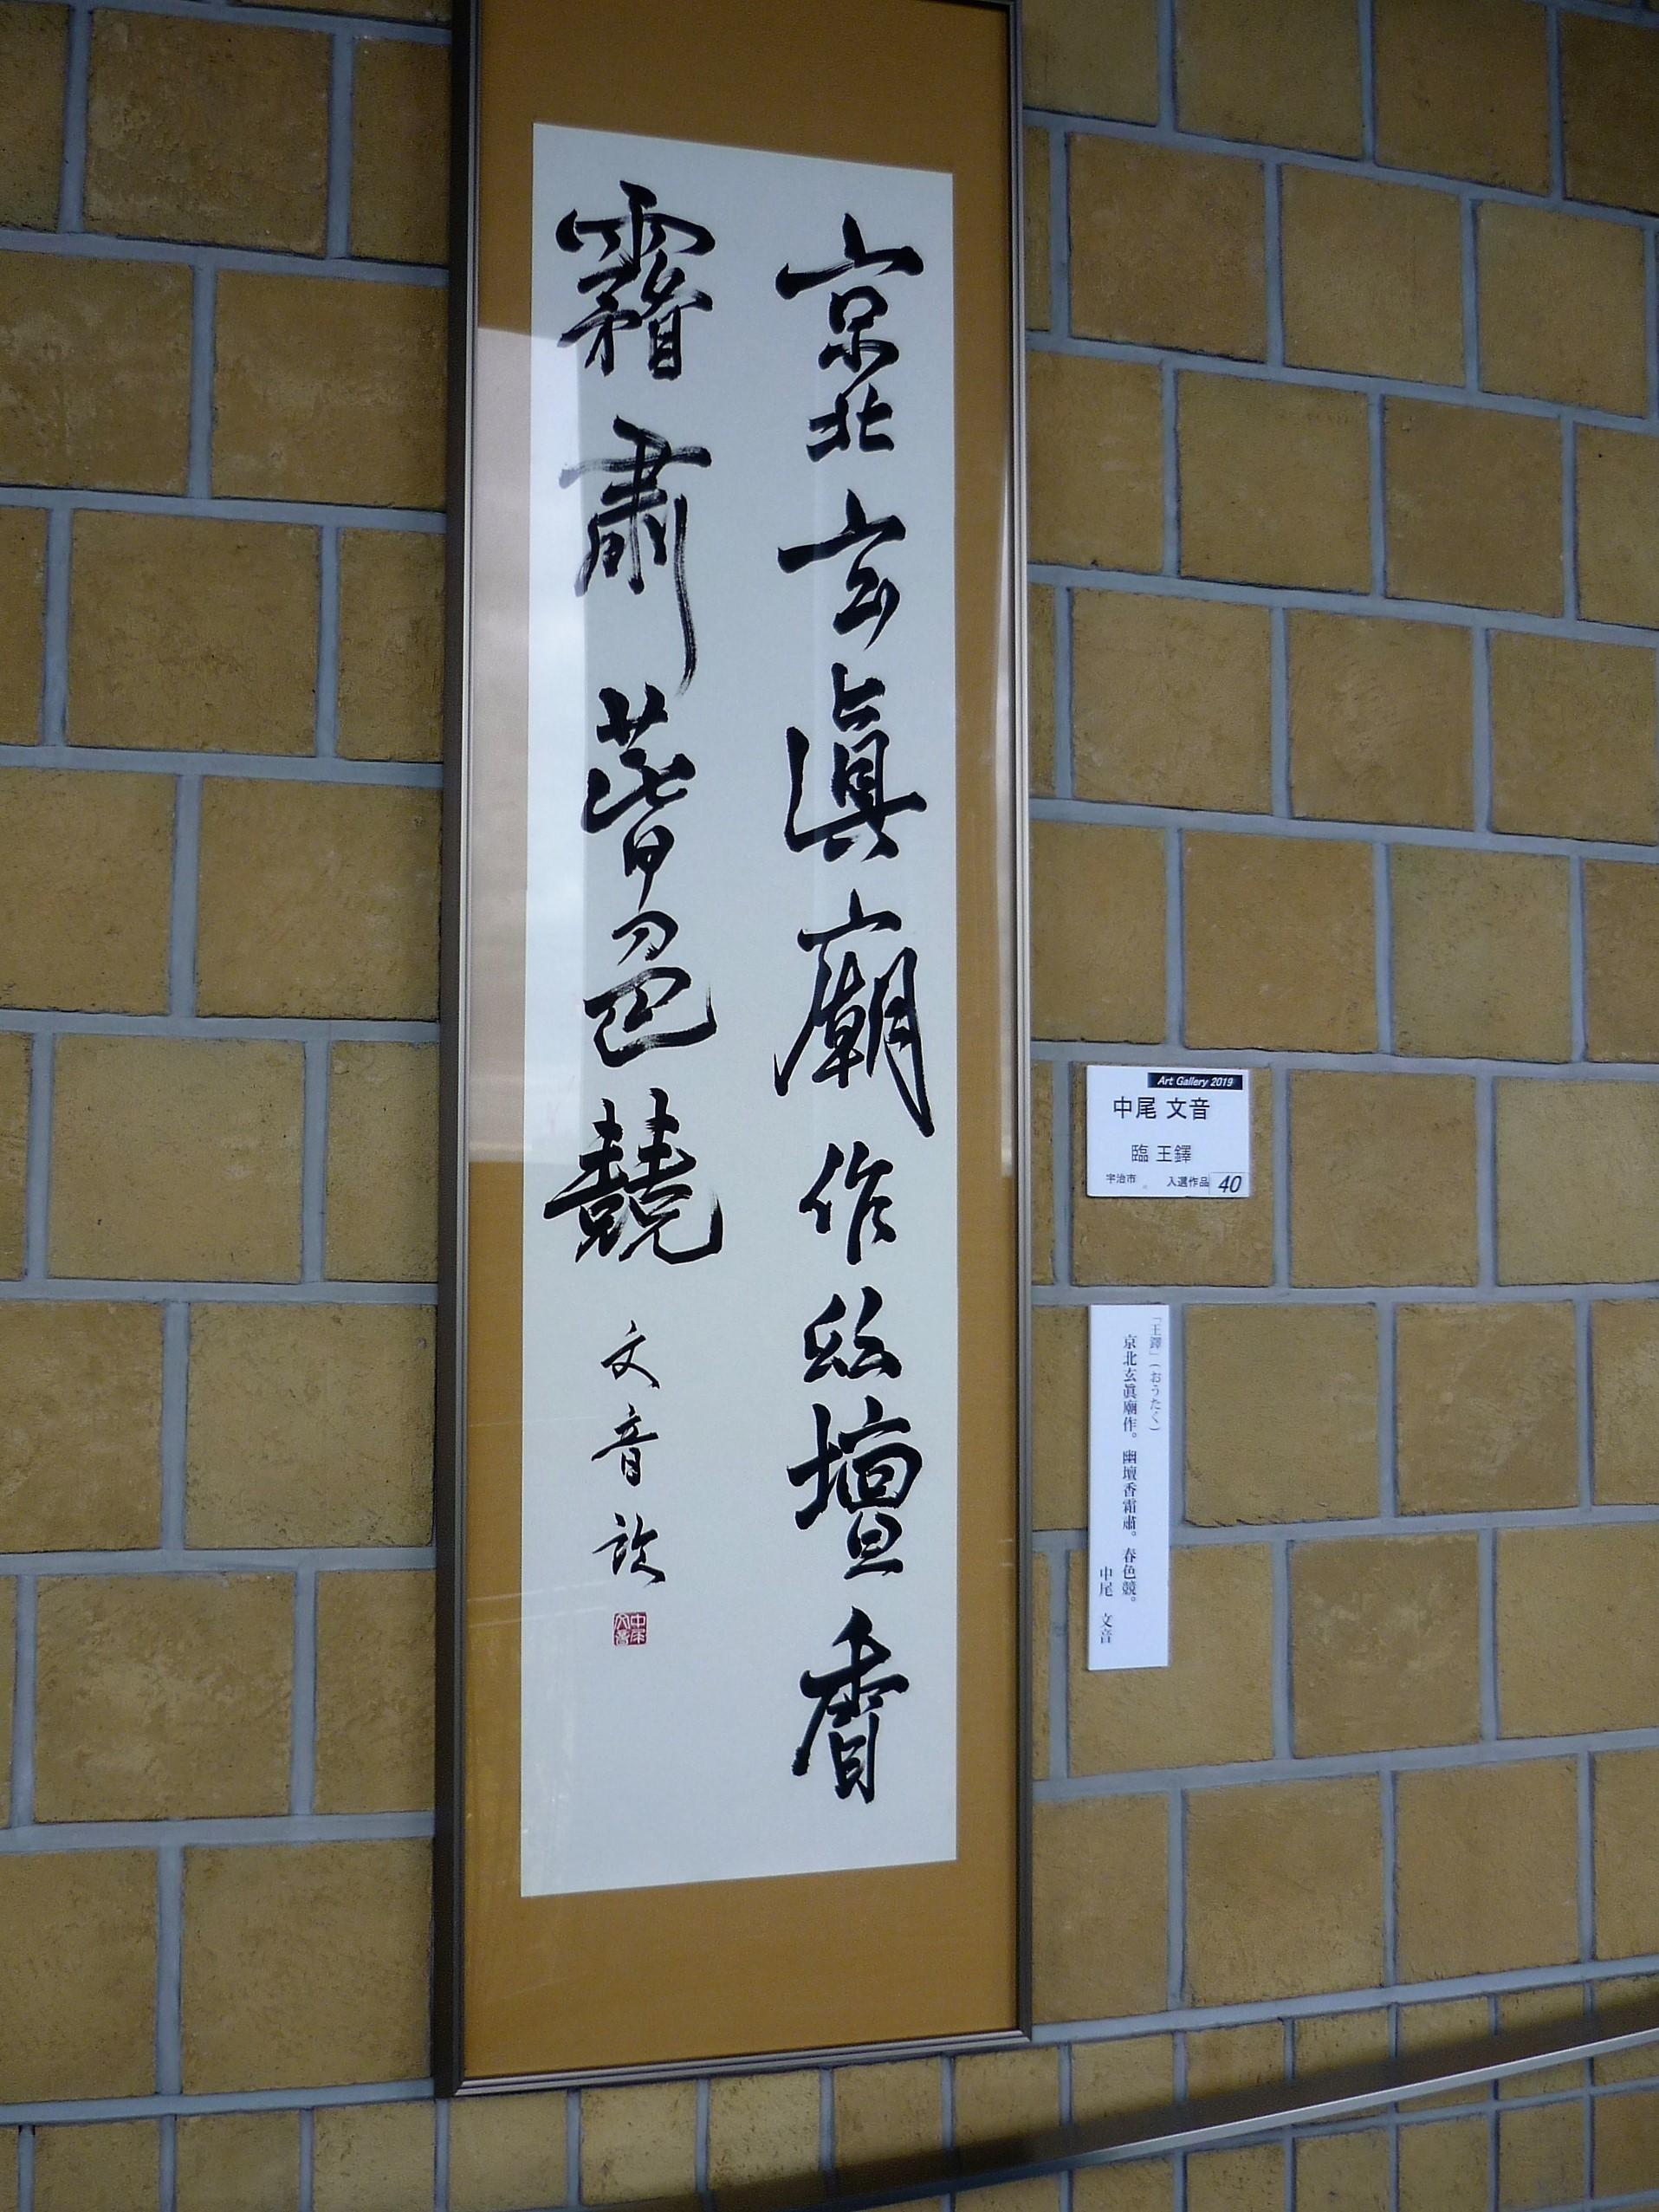 京北玄眞廟作幽壇香
霧肅萅色競
文音
中尾文音
Art Gallery 2019
中尾 文音
臨 王鐸
宇治市 入選作品 40
「王鐸」(おうたく)
京北玄眞廟作。幽壇香霜肅。春色競。
中尾 文音